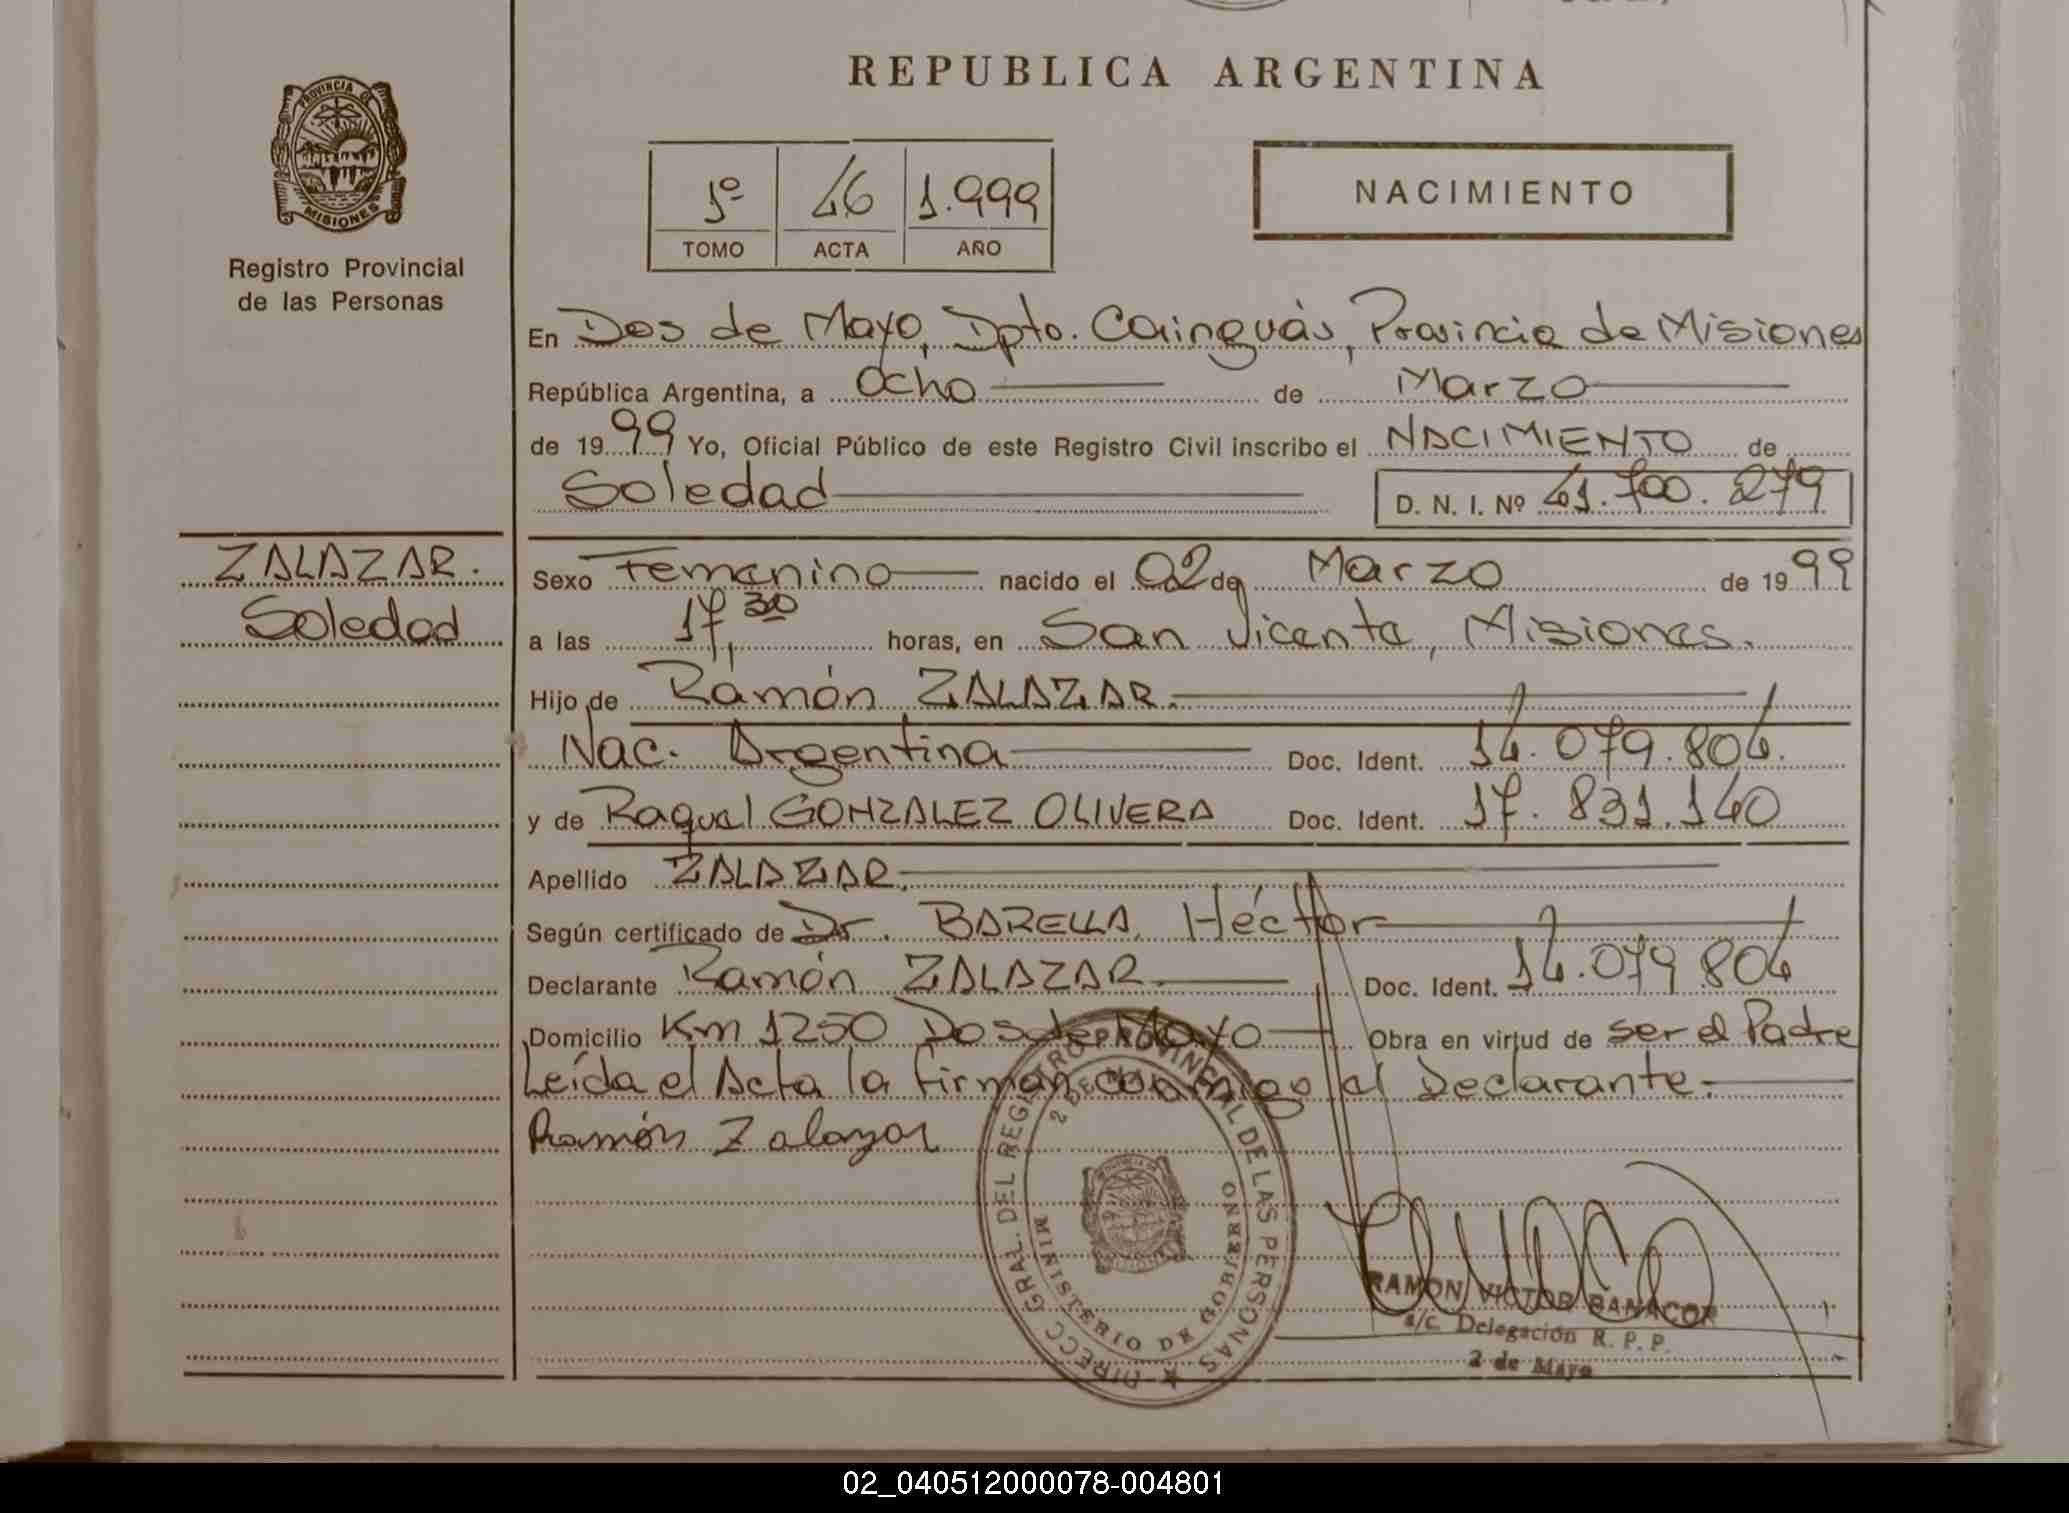 REPUBLICA ARGENTINA
PROVINCIA DE
MISIONES
Registro Provincial
de las Personas
1º 46 1.999
TOMO ACTA AÑO
NACIMIENTO
En Dos de Mayo, Dpto. Cainguás, Provincia de Misiones
República Argentina, a Ocho de Marzo
de 1999 Yo, Oficial Público de este Registro Civil inscribo el NACIMIENTO de
Soledad D. N. I. Nº 41.700.279
ZALAZAR.
Soledad
Sexo Femenino nacido el 02 de Marzo de 1999
a las 17,30 horas, en San Vicente, Misiones.
Hijo de Ramón ZALAZAR.
Nac. Argentina Doc. Ident. 14.079.804.
y de Raquel GONZALEZ OLIVERA Doc. Ident. 17.831.140
Apellido ZALAZAR.
Según certificado de Dr. BARELLA, Héctor
Declarante Ramón ZALAZAR. Doc. Ident. 14.079.804
Domicilio Km 1250 Dos de Mayo Obra en virtud de ser el Padre
Leída el Acta la firman conmigo el Declarante.
Ramón Zalazar
DIRECC GRAL. DEL REGISTRO PROVINCIAL DE LAS PERSONAS
2 DE MAYO
MINISTERIO DE GOBIERNO
RAMON VICTOR BANACOR
a/c. Delegación R. P. P.
2 de Mayo
02_040512000078-004801